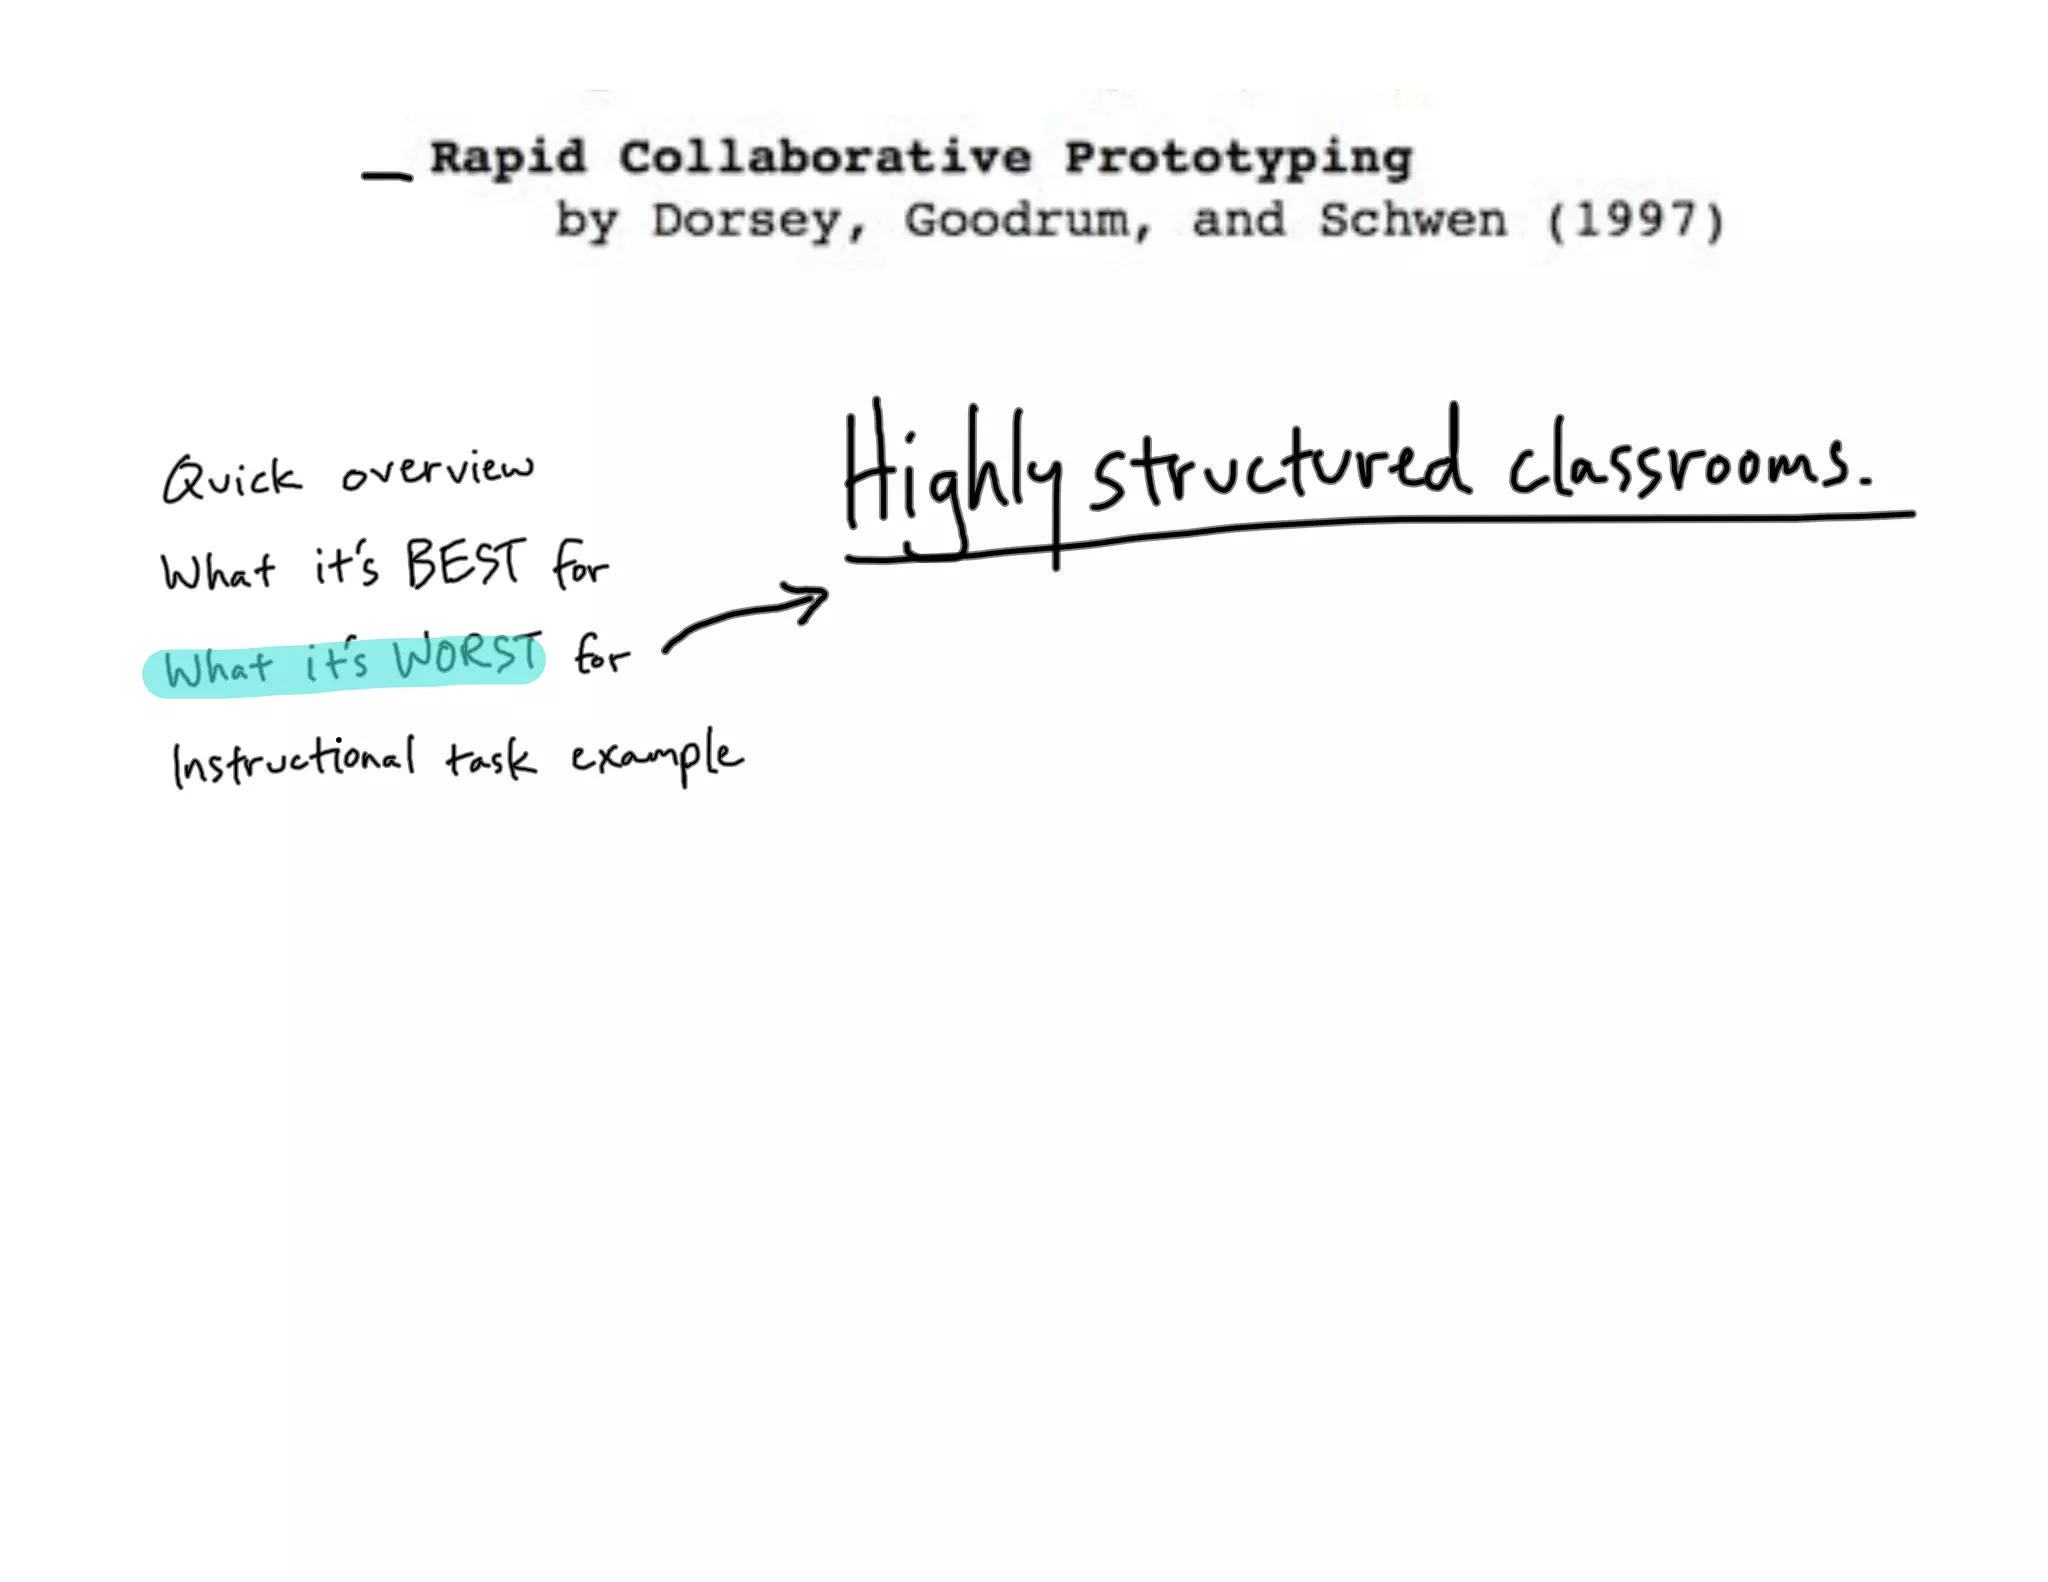 Rapid Collaborative Prototyping
by Dorsey, Goodrum, and Schwen (1997)
Quick overview
What it's BEST for
What it's WORST for
Instructional task example
Highly structured classrooms.